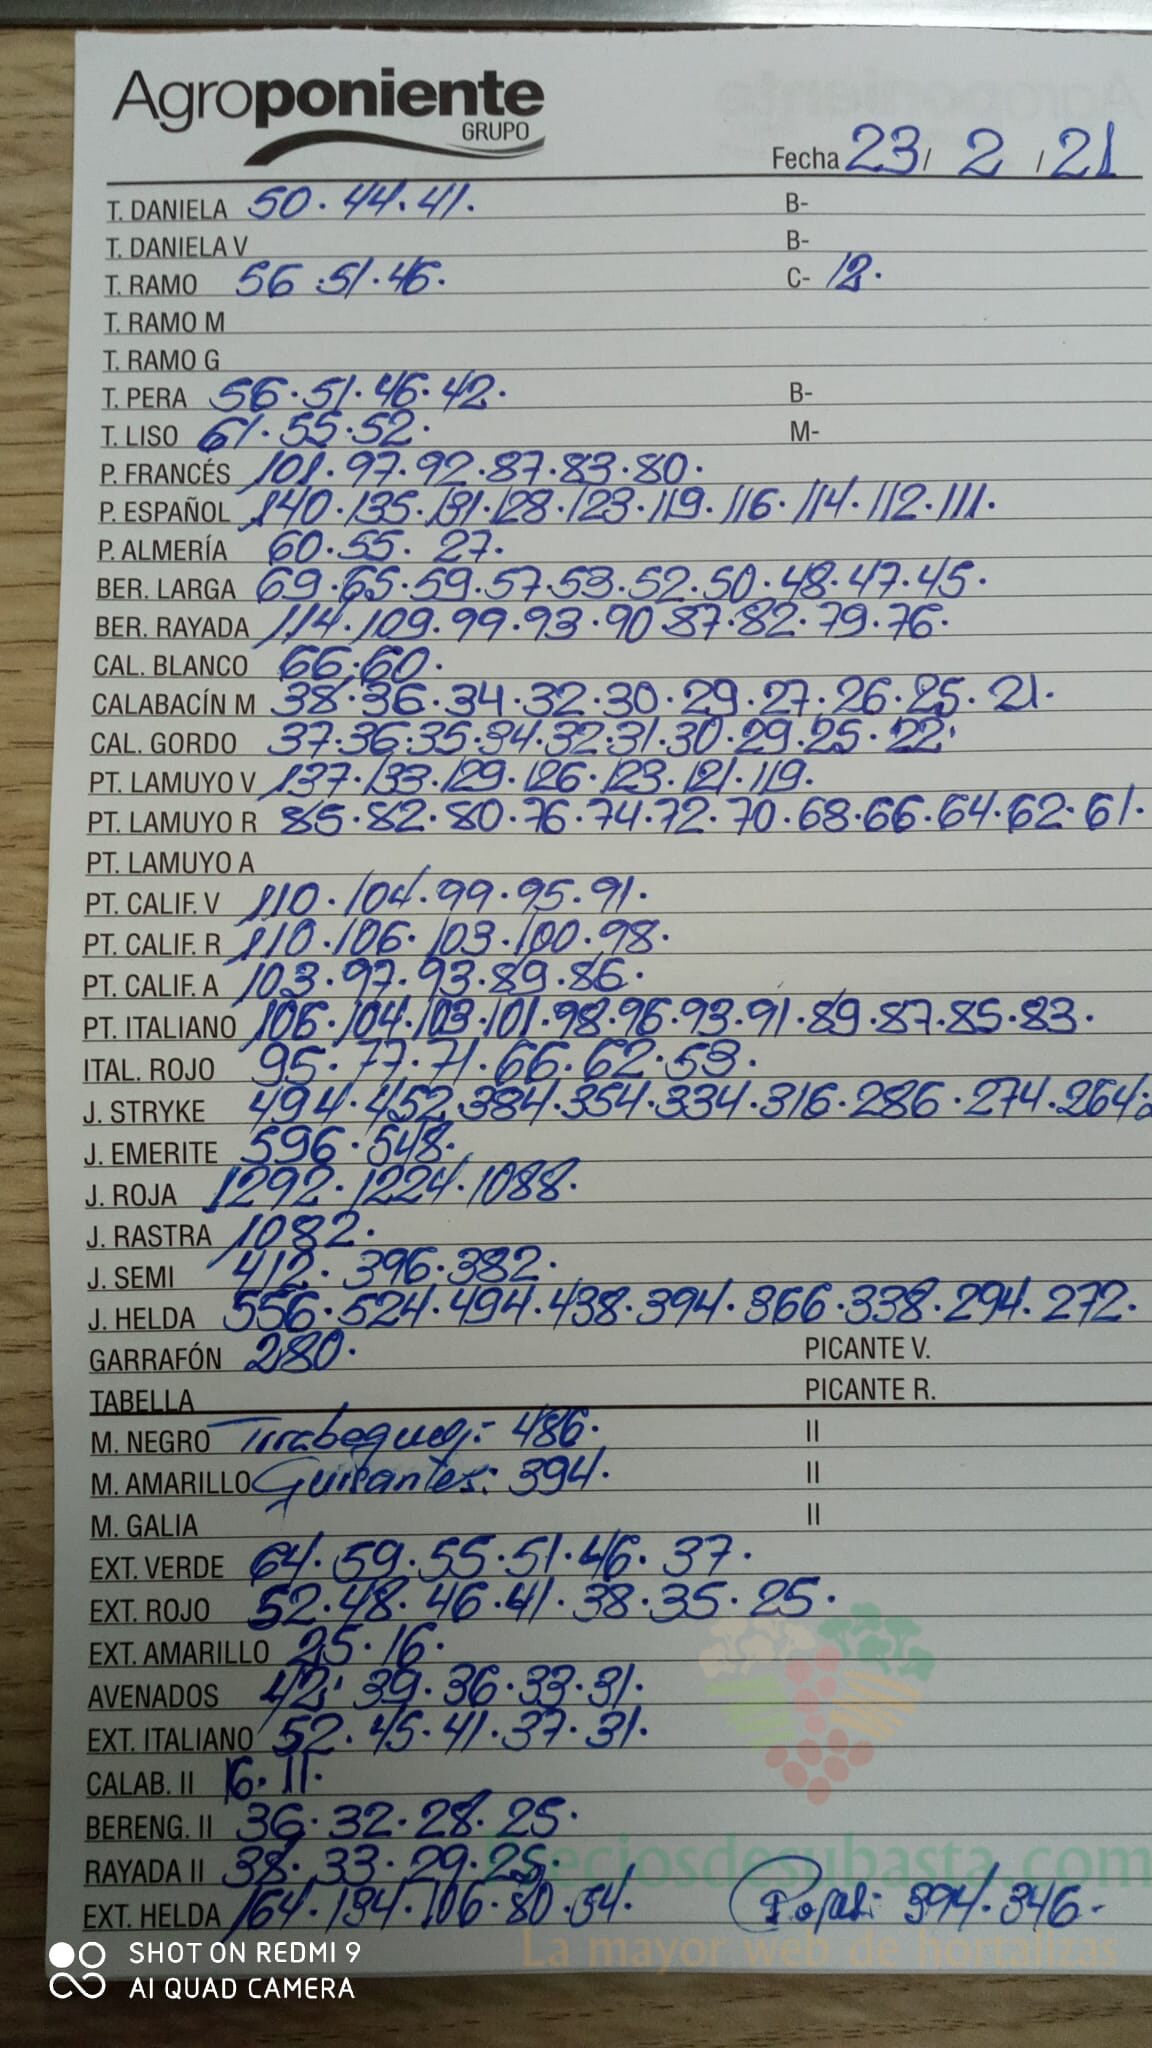 Agroponiente
GRUPO
Fecha 23/ 2 /21
T. DANIELA 50.44.41. B-
T. DANIELA V B-
T. RAMO 56.51.46. C- 12.
T. RAMO M
T. RAMO G
T. PERA 56.51.46.42. B-
T. LISO 61.55.52. M-
P. FRANCÉS 101.97.92.87.83.80.
P. ESPAÑOL 140.135.131.128.123.119.116.114.112.111.
P. ALMERÍA 60.55.27.
BER. LARGA 69.65.59.57.53.52.50.48.47.45.
BER. RAYADA 114.109.99.93.90.87.82.79.76.
CAL. BLANCO 66.60.
CALABACÍN M 38.36.34.32.30.29.27.26.25.21.
CAL. GORDO 37.36.35.34.32.31.30.29.25.22.
PT. LAMUYO V 137.133.129.126.123.121.119.
PT. LAMUYO R 85.82.80.76.74.72.70.68.66.64.62.61.
PT. LAMUYO A
PT. CALIF. V 110.104.99.95.91.
PT. CALIF. R 110.106.103.100.98.
PT. CALIF. A 103.97.93.89.86.
PT. ITALIANO 106.104.103.101.98.96.93.91.89.87.85.83.
ITAL. ROJO 95.77.71.66.62.53.
J. STRYKE 494.452.384.354.334.316.286.274.264.
J. EMERITE 596.548.
J. ROJA 1292.1224.1088.
J. RASTRA 1082.
J. SEMI 412.396.382.
J. HELDA 556.524.494.438.394.366.338.294.272.
GARRAFÓN 280. PICANTE V.
TABELLA PICANTE R.
M. NEGRO Tirabeques: 486. II
M. AMARILLO Guisantes: 394. II
M. GALIA II
EXT. VERDE 64.59.55.51.46.37.
EXT. ROJO 52.48.46.41.38.35.25.
EXT. AMARILLO 25.16.
AVENADOS 42.39.36.33.31.
EXT. ITALIANO 52.45.41.37.31.
CALAB. II 16.11.
BERENG. II 36.32.28.25.
RAYADA II 38.33.29.25.
Preciosdesubasta.com
EXT. HELDA 164.134.106.80.54. 394.346.
La mayor web de hortalizas
SHOT ON REDMI 9
AI QUAD CAMERA